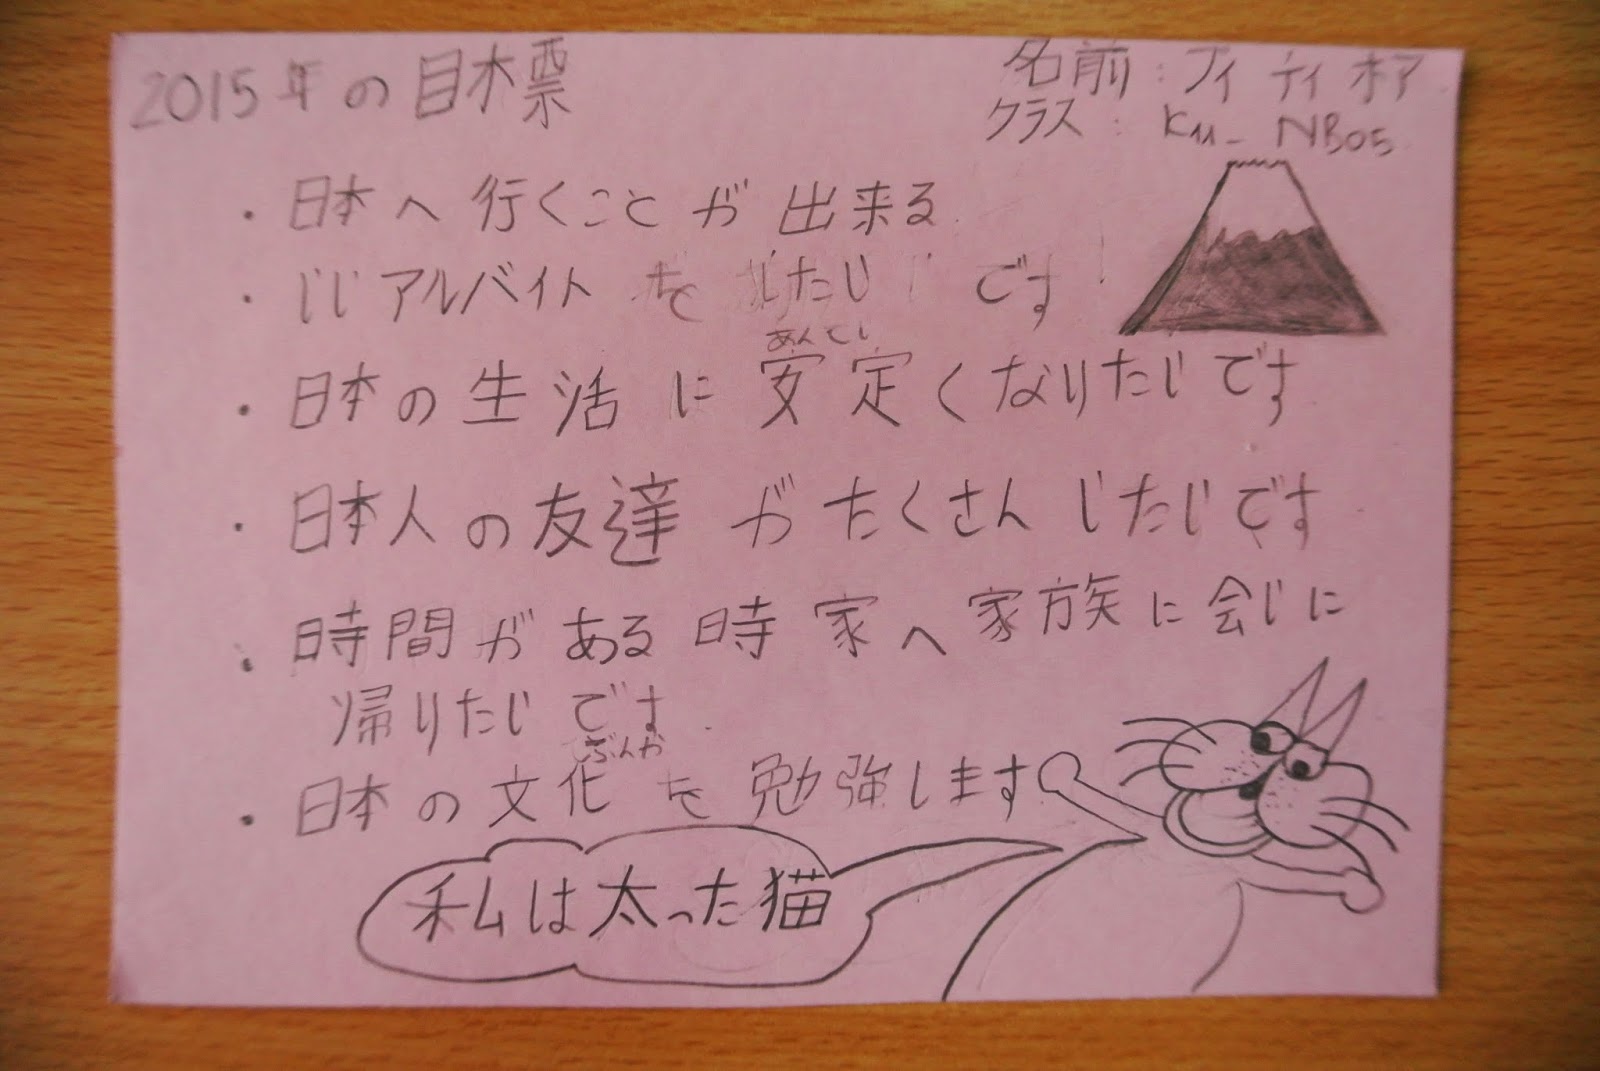 2015年の目標
名前:フィ ティ ホア
クラス: K11_NB05
・日本へ行くことが出来る
・いいアルバイトをしたいです
あんてい
・日本の生活に安定くなりたいです
・日本人の友達がたくさんいたいです
・時間がある時家へ家族に会いに
帰りたいです.
ぶんか
・日本の文化を勉強します
私は太った猫